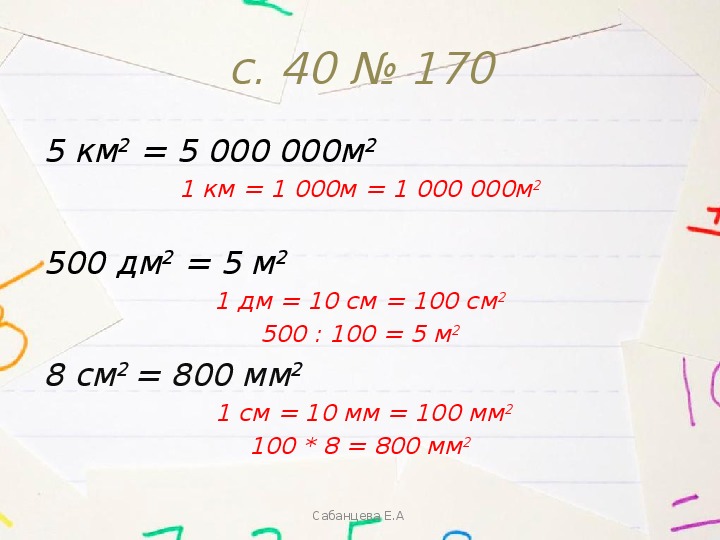 с. 40 № 170
5 км² = 5 000 000м²
1 км = 1 000м = 1 000 000м²
500 дм² = 5 м²
1 дм = 10 см = 100 см²
500 : 100 = 5 м²
8 см² = 800 мм²
1 см = 10 мм = 100 мм²
100 * 8 = 800 мм²
Сабанцева Е.А